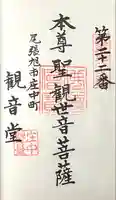 第二十二番
本尊聖観世音菩薩
尾張旭市庄中町
観音堂